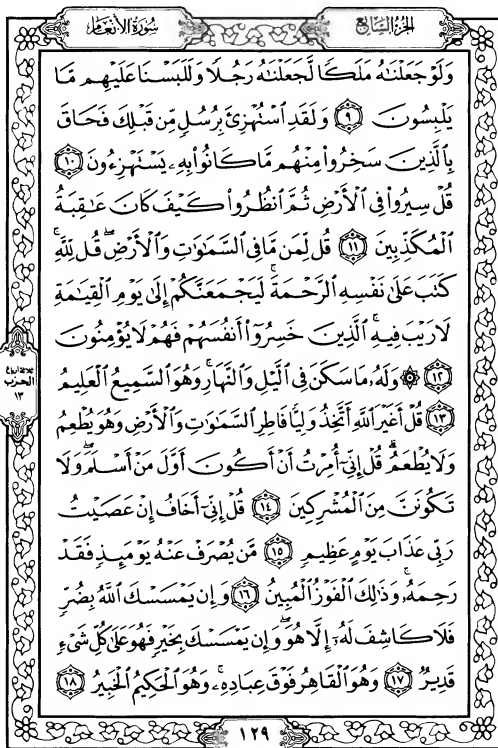 سُورَةُ الأَنْعَامِ
الجُزْءُ السَّابِعُ
وَلَوْ جَعَلْنَٰهُ مَلَكًا لَّجَعَلْنَٰهُ رَجُلًا وَلَلَبَسْنَا عَلَيْهِم مَّا
يَلْبِسُونَ ٩ وَلَقَدِ ٱسْتُهْزِئَ بِرُسُلٍ مِّن قَبْلِكَ فَحَاقَ
بِٱلَّذِينَ سَخِرُوا۟ مِنْهُم مَّا كَانُوا۟ بِهِۦ يَسْتَهْزِءُونَ ١٠
قُلْ سِيرُوا۟ فِى ٱلْأَرْضِ ثُمَّ ٱنظُرُوا۟ كَيْفَ كَانَ عَٰقِبَةُ
ٱلْمُكَذِّبِينَ ١١ قُل لِّمَن مَّا فِى ٱلسَّمَٰوَٰتِ وَٱلْأَرْضِ ۖ قُل لِّلَّهِ ۚ
كَتَبَ عَلَىٰ نَفْسِهِ ٱلرَّحْمَةَ ۚ لَيَجْمَعَنَّكُمْ إِلَىٰ يَوْمِ ٱلْقِيَٰمَةِ
لَا رَيْبَ فِيهِ ۚ ٱلَّذِينَ خَسِرُوٓا۟ أَنفُسَهُمْ فَهُمْ لَا يُؤْمِنُونَ
١٢ ۞ وَلَهُۥ مَا سَكَنَ فِى ٱلَّيْلِ وَٱلنَّهَارِ ۚ وَهُوَ ٱلسَّمِيعُ ٱلْعَلِيمُ
١٣ قُلْ أَغَيْرَ ٱللَّهِ أَتَّخِذُ وَلِيًّا فَاطِرِ ٱلسَّمَٰوَٰتِ وَٱلْأَرْضِ وَهُوَ يُطْعِمُ
وَلَا يُطْعَمُ ۗ قُلْ إِنِّىٓ أُمِرْتُ أَنْ أَكُونَ أَوَّلَ مَنْ أَسْلَمَ ۖ وَلَا
تَكُونَنَّ مِنَ ٱلْمُشْرِكِينَ ١٤ قُلْ إِنِّىٓ أَخَافُ إِنْ عَصَيْتُ
رَبِّى عَذَابَ يَوْمٍ عَظِيمٍ ١٥ مَّن يُصْرَفْ عَنْهُ يَوْمَئِذٍ فَقَدْ
رَحِمَهُۥ ۚ وَذَٰلِكَ ٱلْفَوْزُ ٱلْمُبِينُ ١٦ وَإِن يَمْسَسْكَ ٱللَّهُ بِضُرٍّ
فَلَا كَاشِفَ لَهُۥٓ إِلَّا هُوَ ۖ وَإِن يَمْسَسْكَ بِخَيْرٍ فَهُوَ عَلَىٰ كُلِّ شَىْءٍ
قَدِيرٌ ١٧ وَهُوَ ٱلْقَاهِرُ فَوْقَ عِبَادِهِۦ ۚ وَهُوَ ٱلْحَكِيمُ ٱلْخَبِيرُ ١٨
ثلاثة أرباع
الحزب
١٣
١٢٩